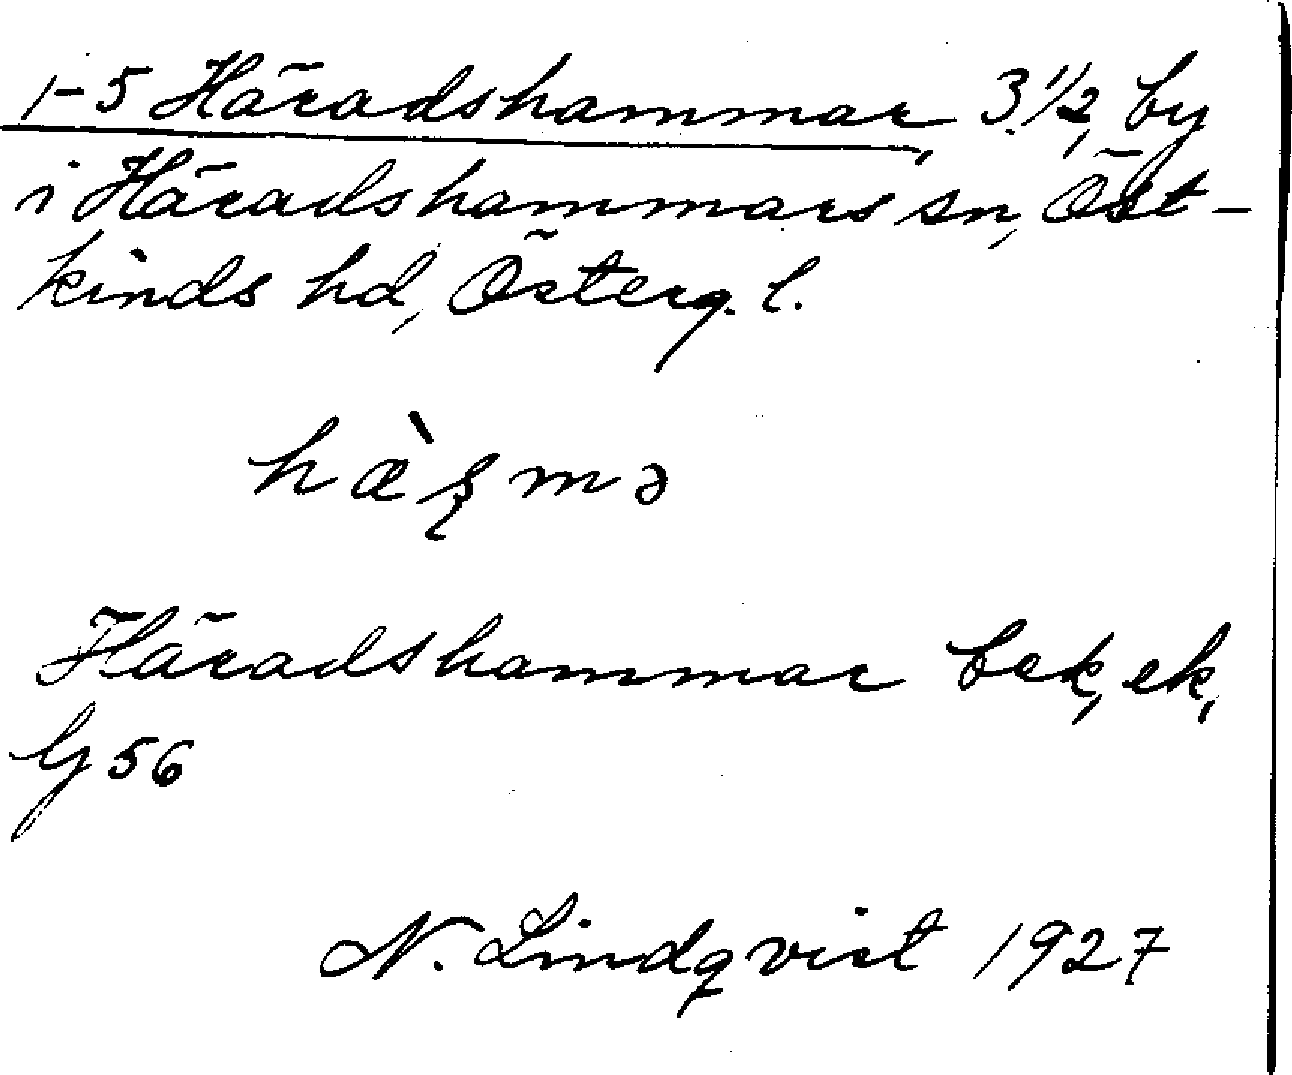 1-5 Häradshammar, 3 1/2, by
i Häradshammars sn, Öst-
kinds hd, Österg. l.
hæ̀ʂmə
Häradshammar bek, ek,
G 56
N. Lindqvist 1927